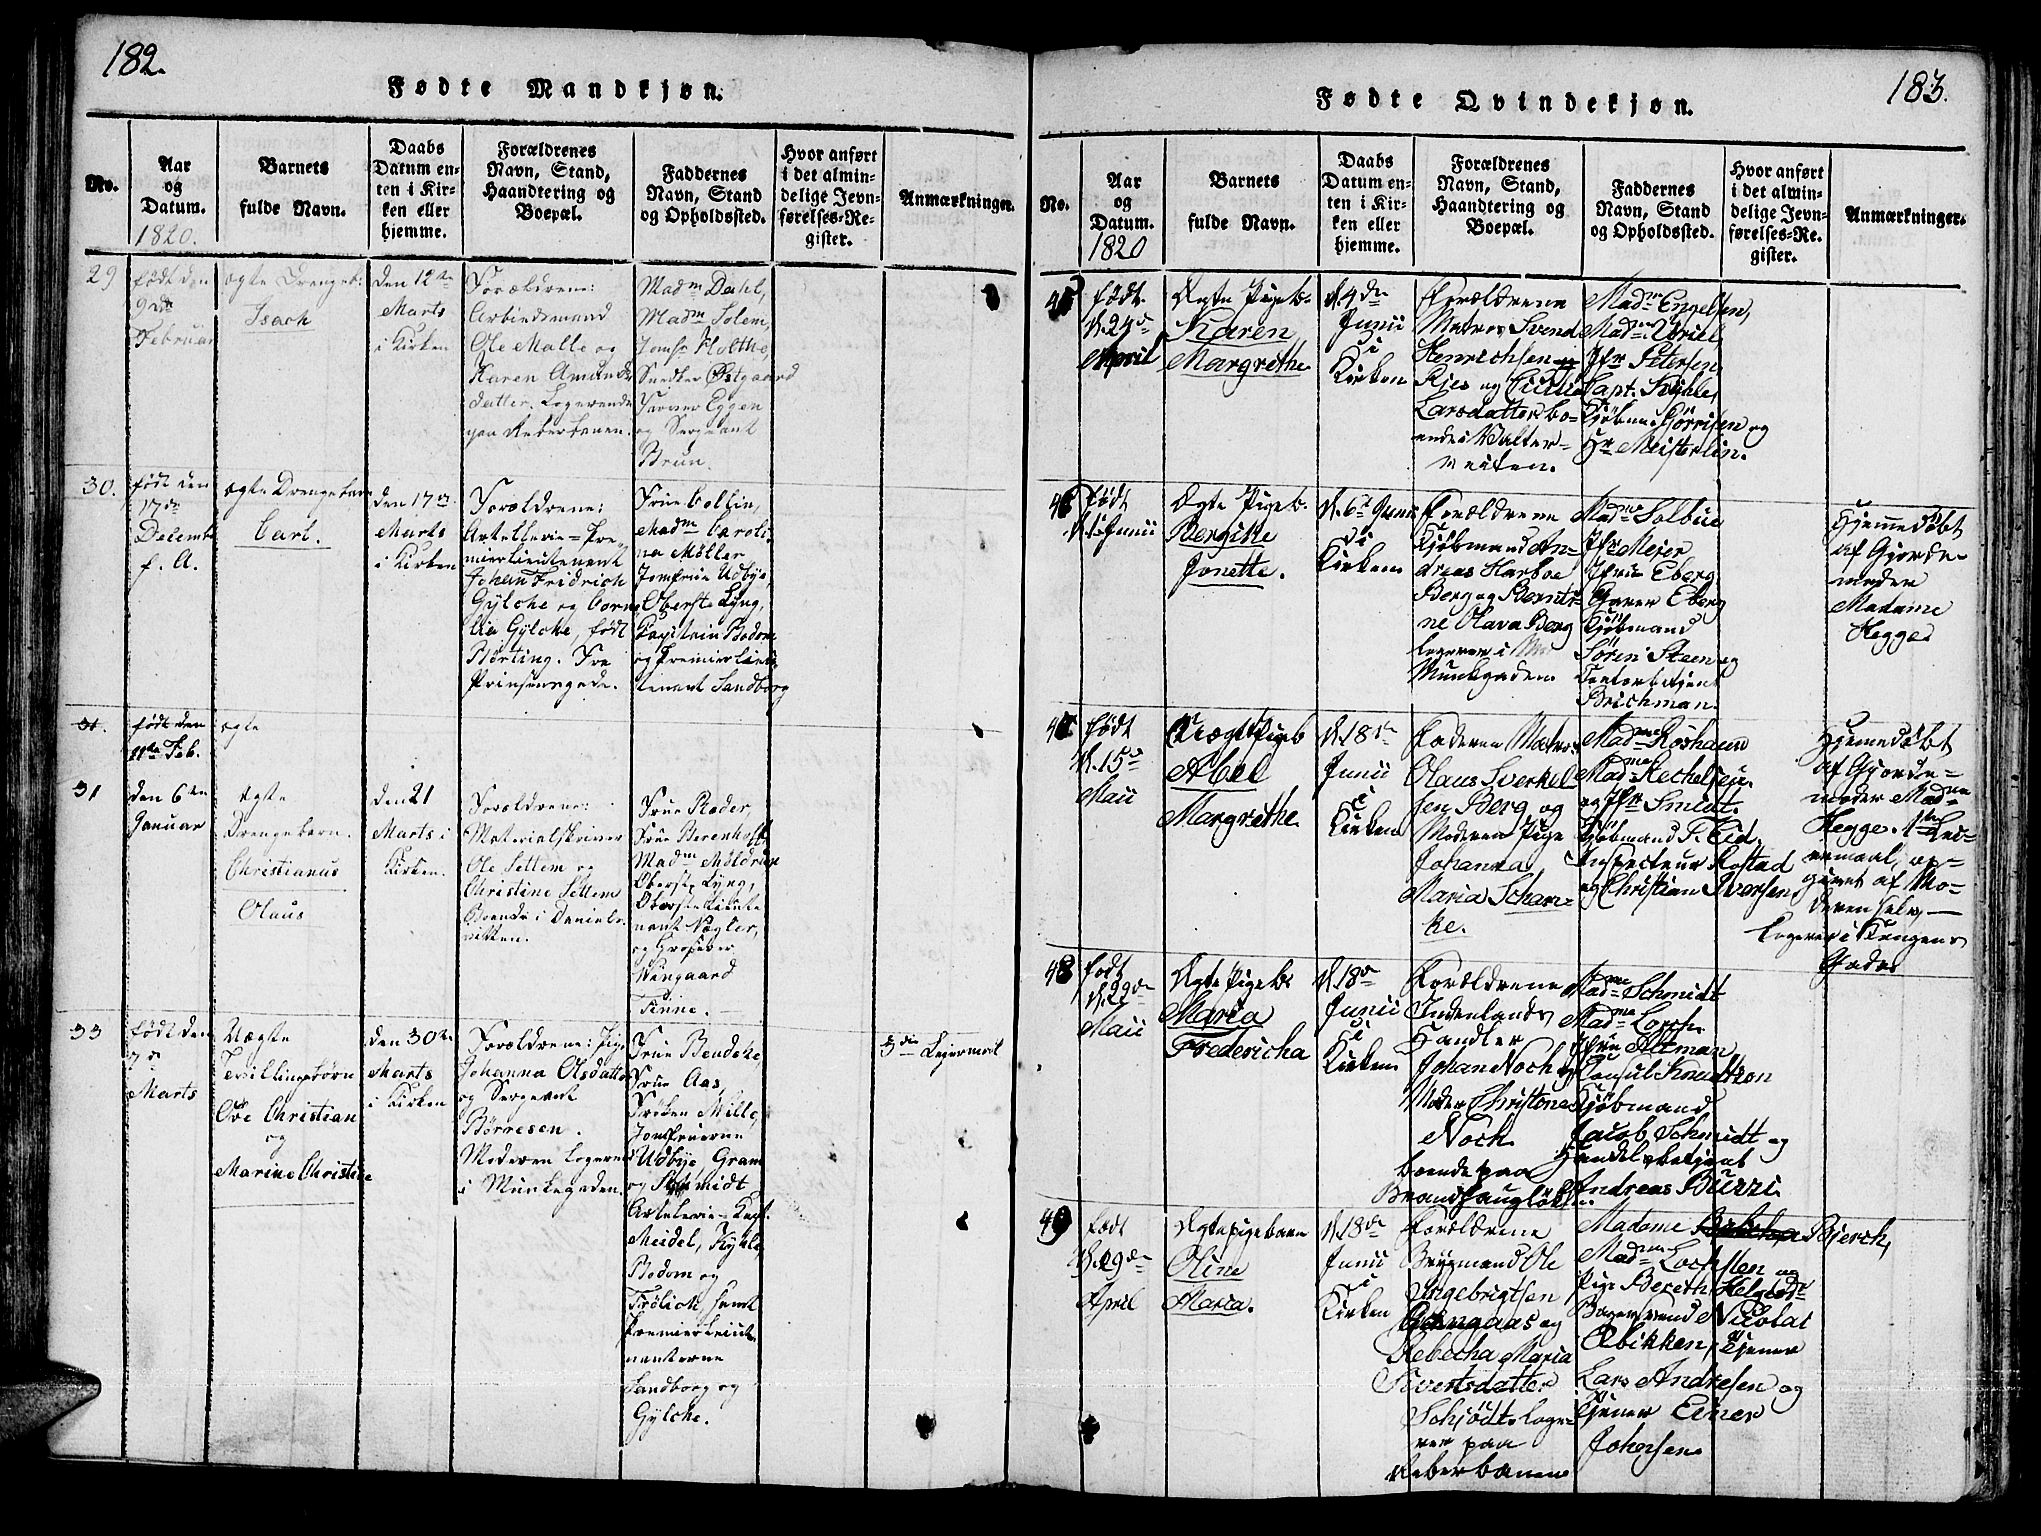 182.
Fødte Mandkjøn.
No.
Aar
og
Datum.
1820.
Barnets
fulde Navn.
Daabs
Datum en-
ten i Kir-
ken eller
hjemme.
Forældrenes
Navn, Stand,
Haandtering og
Boepæl.
Faddernes
Navn, Stand
og Opholdssted.
Hvor anført
i det almin-
delige Jevn-
førelses-Re-
gister.
Anmærkninger.
29
født den
9de
Februar
ægte Drengeb:
Isach
den 12te
Marts
i Kirken
Forældrene:
Arbeidsmand
Ole Malle og
Karen Amunds
datter. Logerende
paa Reberbanen.
Madm Dahl,
Madm Solem,
Jomfr Holthe,
Snedker Østgaard
Farver Eggen
og Sergeant
Brun.
30.
født den
17de
Decemb
f. A.
ægte Drengebarn
Carl.
den 17de
Marts
i Kirken
Forældrene:
Artellerie-Pre-
mierlieutenant
Johan Fridrich
Gylche og Corne
lia Gylche, født
Børting.
Prinsensgade.
Frue Collin,
Madm Caroli-
na Möller
Jomfrue Udbye,
Oberste Lyng,
Capitain Bodom
og Premierlieu
tenant Sandborg
31.
født den
11te Feb.
ægte
31
den 6te
Januar
ægte
Drengebarn.
Christianus
Olaus
den 21
Marts i
Kirken.
Forældrene:
Materialskriver
Ole Settem og
Christine Settem
Boende i Daniels
veiten.
Frue Roder,
Frue Berenhoft
Madm Möldrup
Oberste Lyng,
Oberstelieute
nant Nøgler,
og Grosserer
Wingaard
Finne.
33
født den
7de
Marts
Uægte
Tvillingebørn
Ove Christian
og
Marine Christine
den 30te
Marts
i Kirken
Forældrene: Pige
Johanna Olsdatter
og Sergeant
Börresen.
Moderen Logerer
i Munkegaden.
Frue Bendeke,
Frue Aas,
Frøken Mille,
Jomfruerne
Udbye Gram
og Schmidt,
Artelerie-Capt.
Meidel, Kyhle,
Bodom og
Frölich, samt
Premierlieut.
nanterne
Sandborg og
Gylche.
3die Leiermaal
183.
Fødte Qvindekjøn.
No.
Aar
og
Datum.
1820
Barnets
fulde Navn.
Daabs
Datum en-
ten i Kir-
ken eller
hjemme.
Forældrenes
Navn, Stand,
Haandtering og
Boepæl.
Faddernes
Navn, Stand
og Opholdssted.
Hvor anført
i det almin-
delige Jevn-
førelses-Re-
gister.
Anmærkninger.
45
født
d. 24de
April
Ægte Pigeb.
Karen
Margrethe
d. 4de
Junii
i
Kirken
Forældrene
Matros Svend
Henrichsen
Ries og Cicilie
Larsdatter bo-
ende i Walter-
veiten.
Madm Engelsen,
Madm Uriel,
Jfr Petersen
Capt. Kyhle,
Kjöbm Görrisen og
Hr Meisterlin.
46
født
d. 1 Junii
Ægte Pigeb.
Bergitte
Jonette.
d. 6te Junii
i
Kirken
Forældrene
Kjöbmand An-
dreas Harboe
Berg og Bernti-
ne Olava Berg
logerer i
Munkgaden
Madme Solbue
Jfr Mejer
Jfrue Eberg
Garver Eberg
Kjöbmand
Sören Steen og
Contorbetjent
Brichman.
Hjemmedöbt
af Gjorde-
moder
Madame
Hegge
47
født
d. 15de
Maii
Uægte Pigeb
Abel
Margrethe
d. 18de
Junii
i
Kirken
Faderen Matros
Olaus Sverkel
sen Berg og
Moderen Pige
Johanna
Maria Schan-
ke.
Madme Roshaun
Madme Rechelsen
og Jfr Smidt.
Kjöbmand P. Eid
Inspecteur Rostad
og Christian Iversen
Hjemedöbt
af Gjorde-
moder Madme
Hegge. 1ste Lei-
ermaal, op-
givet af Mo-
deren selv,
logerer i Kongens
Gade
48
født
d. 22de
Maii
Ægte Pigeb.
Maria
Fredericha
d. 18de
Junii
i
Kirken
Forældrene
Indenlands
Handler
Johan Noch og
Moder Christense
Noch
boende paa
Brandhaugløkken.
Madme Schmidt
Madme Lorch.
Jfrue Altman
Consul Knudtzon
Kjöbmand
Jacob Schmidt og
Handelsbetjent
Andreas Buzzi.
49
født
d. 29de
April
Ægte pigebarn
Oline
Maria.
d. 18de
Junii
i
Kirken
Forældrene
Brygmand Ole
Ingebrigtsen
og
Rebecha Maria
Sivertsdatter
Schjödt loge-
rer paa
Reberbanen
Madame Bjerch,
Madme Lochsten og
Pige Bereth Helgesdr
Bagersvend Nicolai
Æbikken, Tjener
Lars Andresen og
Tjener Einer
Johnsen